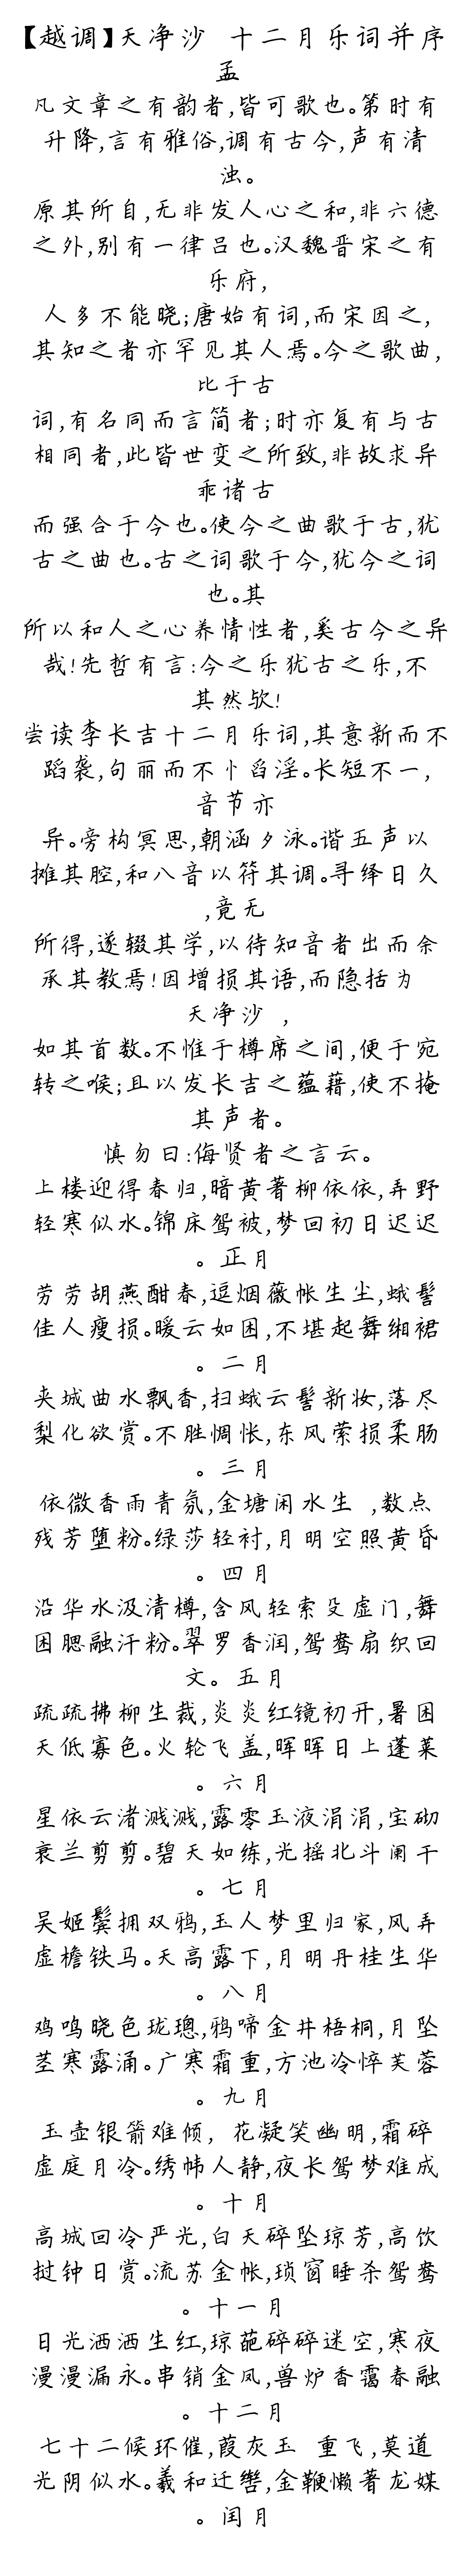 【越调】天净沙 十二月乐词并序
孟
凡文章之有韵者,皆可歌也。第时有
升降,言有雅俗,调有古今,声有清
浊。
原其所自,无非发人心之和,非六德
之外,别有一律吕也。汉魏晋宋之有
乐府,
人多不能晓;唐始有词,而宋因之,
其知之者亦罕见其人焉。今之歌曲,
比于古
词,有名同而言简者;时亦复有与古
相同者,此皆世变之所致,非故求异
乖诸古
而强合于今也。使今之曲歌于古,犹
古之曲也。古之词歌于今,犹今之词
也。其
所以和人之心养情性者,奚古今之异
哉!先哲有言:今之乐犹古之乐,不
其然欤!
尝读李长吉十二月乐词,其意新而不
蹈袭,句丽而不忄舀淫。长短不一,
音节亦
异。旁构冥思,朝涵夕泳。谐五声以
摊其腔,和八音以符其调。寻绎日久
,竟无
所得,遂辍其学,以待知音者出而余
承其教焉!因增损其语,而隐括为
天净沙 ,
如其首数。不惟于樽席之间,便于宛
转之喉;且以发长吉之蕴藉,使不掩
其声者。
慎勿曰:侮贤者之言云。
上楼迎得春归,暗黄著柳依依,弄野
轻寒似水。锦床鸳被,梦回初日迟迟
。正月
劳劳胡燕酣春,逗烟薇帐生尘,蛾髻
佳人瘦损。暖云如困,不堪起舞缃裙
。二月
夹城曲水飘香,扫蛾云髻新妆,落尽
梨化欲赏。不胜惆怅,东风萦损柔肠
。三月
依微香雨青氛,金塘闲水生 ,数点
残芳堕粉。绿莎轻衬,月明空照黄昏
。四月
沿华水汲清樽,含风轻索殳虚门,舞
困腮融汗粉。翠罗香润,鸳鸯扇织回
文。五月
疏疏拂柳生裁,炎炎红镜初开,暑困
天低寡色。火轮飞盖,晖晖日上蓬莱
。六月
星依云渚溅溅,露零玉液涓涓,宝砌
衰兰剪剪。碧天如练,光摇北斗阑干
。七月
吴姬鬓拥双鸦,玉人梦里归家,风弄
虚檐铁马。天高露下,月明丹桂生华
。八月
鸡鸣晓色珑璁,鸦啼金井梧桐,月坠
茎寒露涌。广寒霜重,方池冷悴芙蓉
。九月
玉壶银箭难倾, 花凝笑幽明,霜碎
虚庭月冷。绣帏人静,夜长鸳梦难成
。十月
高城回冷严光,白天碎坠琼芳,高饮
挝钟日赏。流苏金帐,琐窗睡杀鸳鸯
。十一月
日光洒洒生红,琼葩碎碎迷空,寒夜
漫漫漏永。串销金凤,兽炉香霭春融
。十二月
七十二候环催,葭灰玉 重飞,莫道
光阴似水。羲和迁辔,金鞭懒著龙媒
。闰月